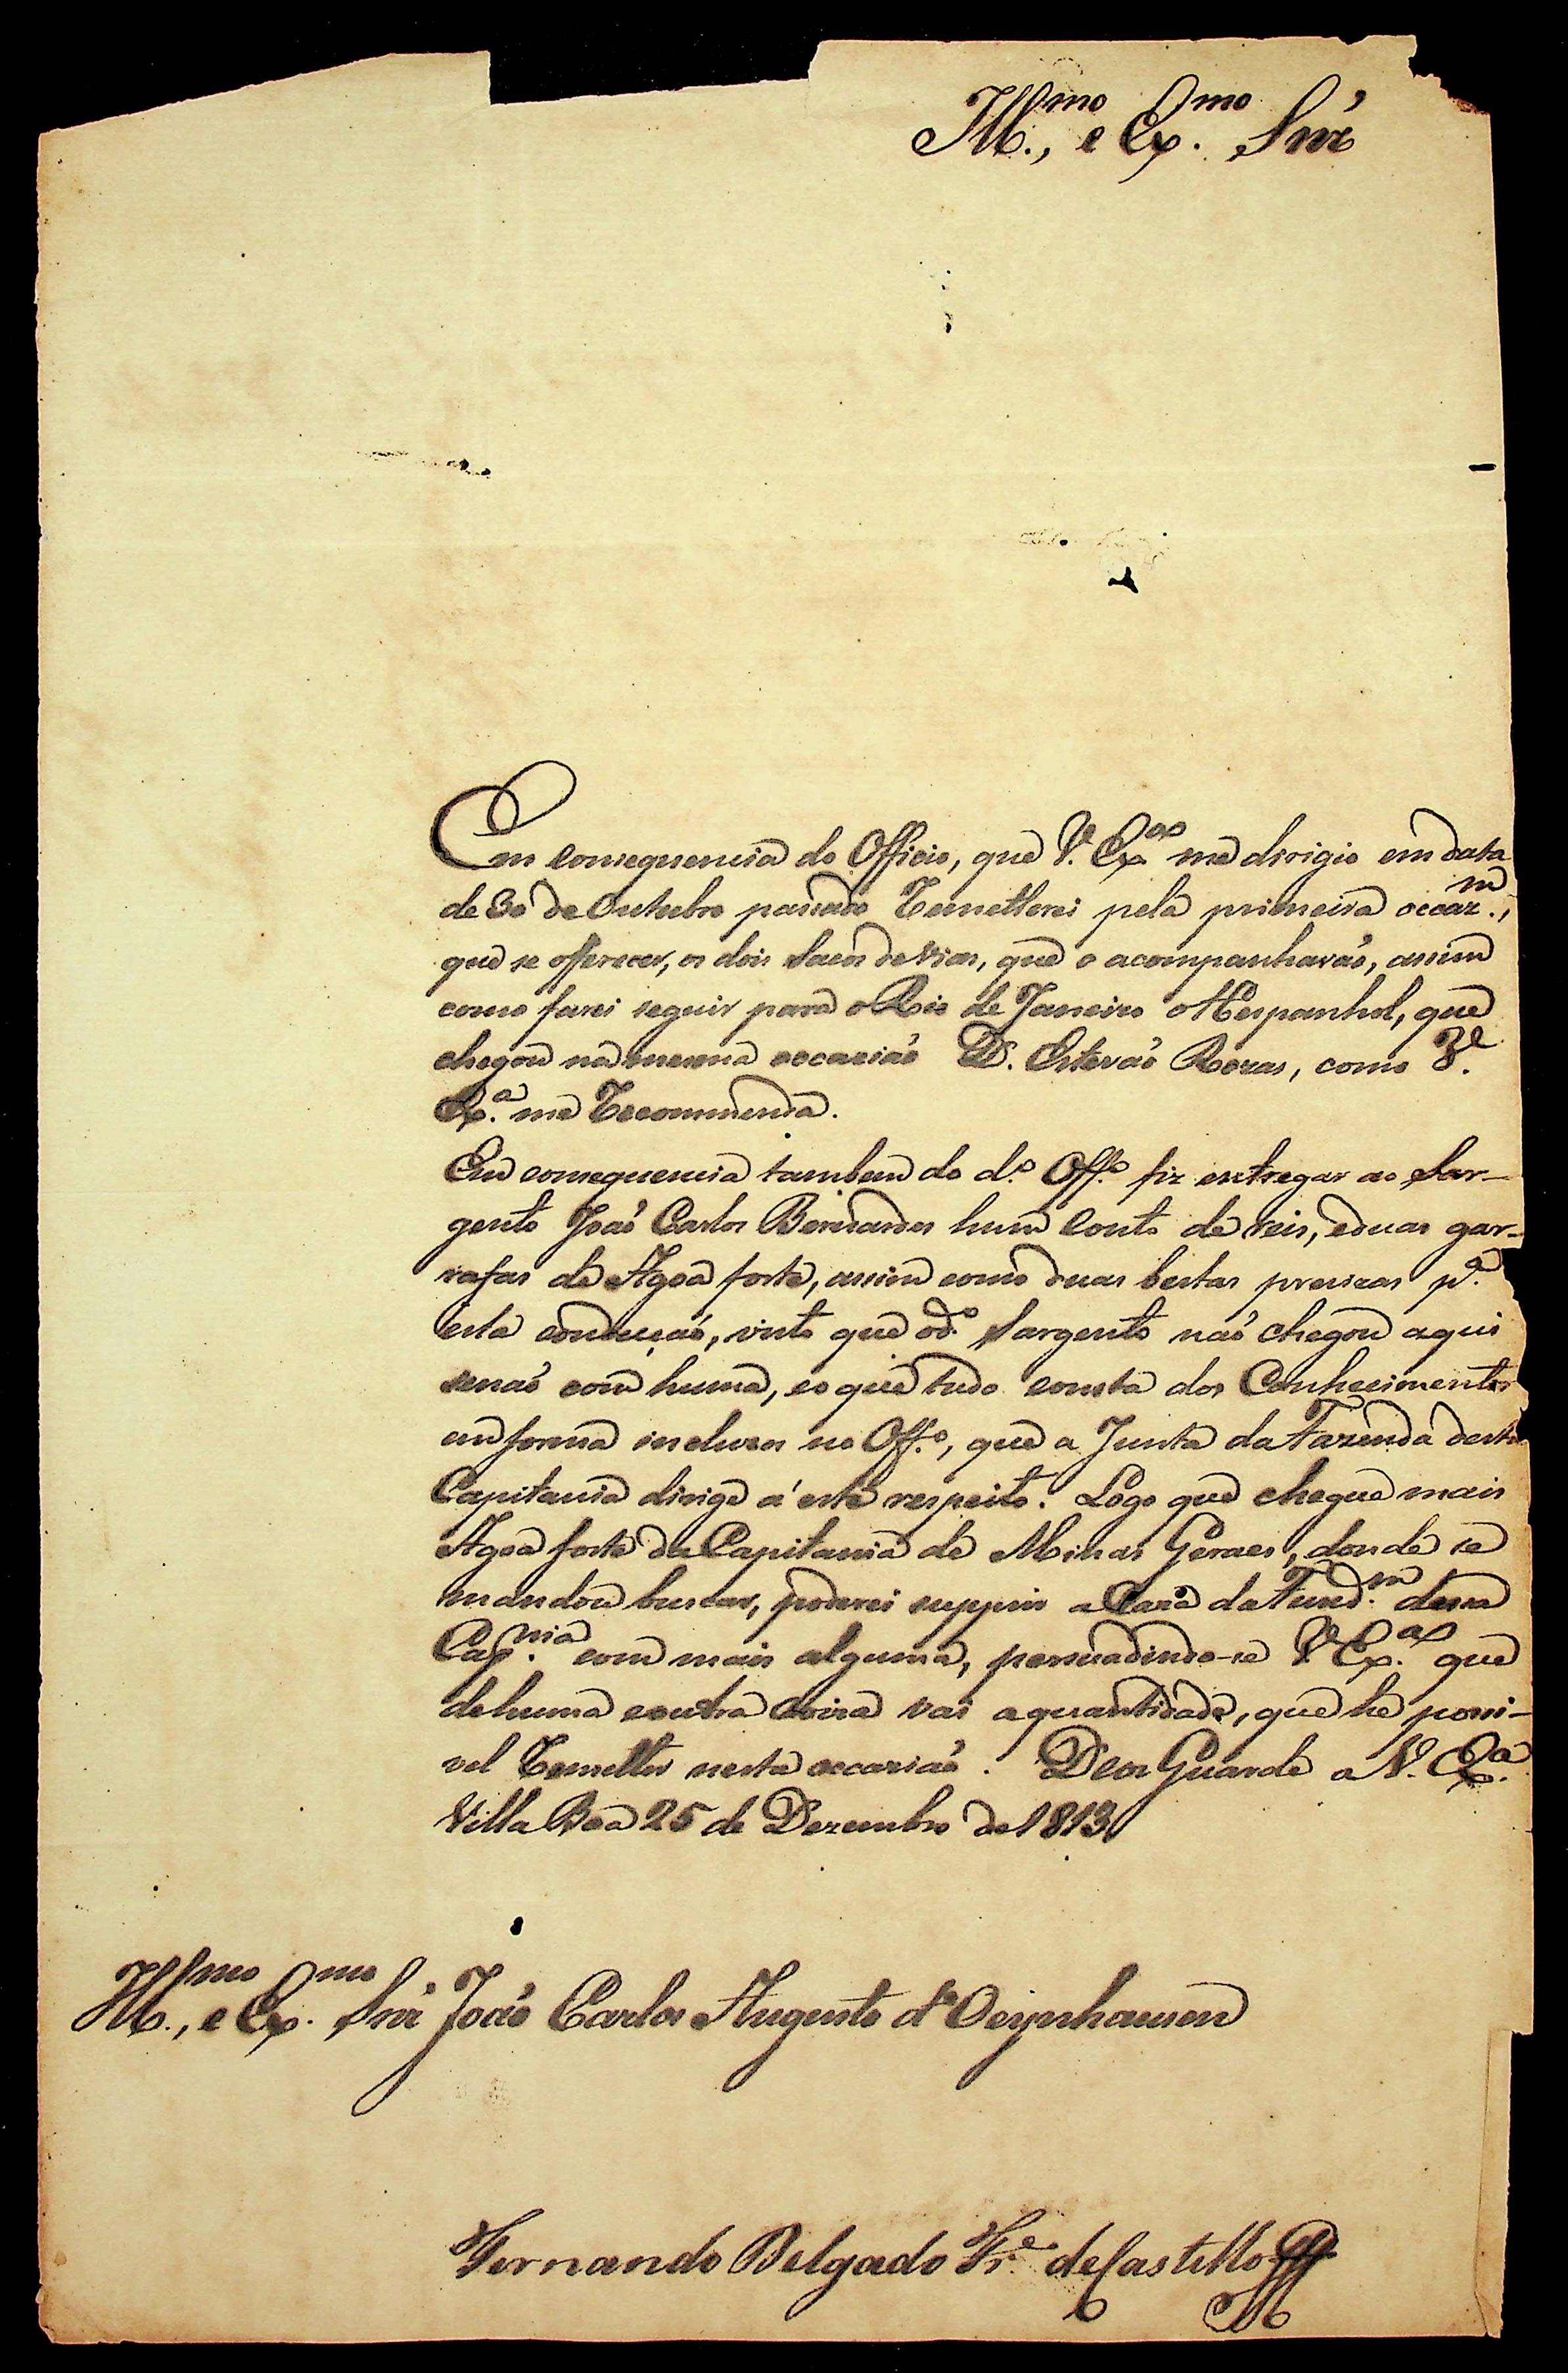 Ill.mo, e Ex.mo Snr'
Em consequencia do Officio, que V. Ex.a me dirigio em data
de 30 de Outubro passado Remetterei pela primeira occaz.m,
que se offerecer, os dois Sacos de vias, que o acompanharaó, assim
como farei seguir para o Rio de Janeiro o Hespanhol, que
chegou na mesma occaziaó D. Estevaó Rozas, como V.
Ex.a me Recommenda.
Em consequencia tambem do d.o Off.o fiz entregar ao Sar-
gento Joaó Carlos Bernardes hum Conto de reis, e duas gar-
rafas de Agoa forte, assim como duas bestas precizas p.a
esta conducçaó, visto que o d.o Sargento naó chegou aqui
senaó com huma, e o que tudo consta dos Conhecimentos
em forma incluzos no Off.o, que a Junta da Fazenda desta
Capitania dirige á este respeito. Logo que chegue mais
Agoa forte da Capitania de Minas Geraes, donde se
mandou buscar, poderei supprir a Caza da Fund.m dessa
Cap.nia com mais alguma, persuadindo-se V. Ex.a que
de huma e outra coiza vai a quantidade, que he possi-
vel Remetter nesta occaziaó. Deos Guarde a V. Ex.a
Villa Boa 25 de Dezembro de 1813
Ill.mo, e Ex.mo Snr Joaó Carlos Augusto d'Oeynhausen
Fernando Delgado Fr.e de Castilho